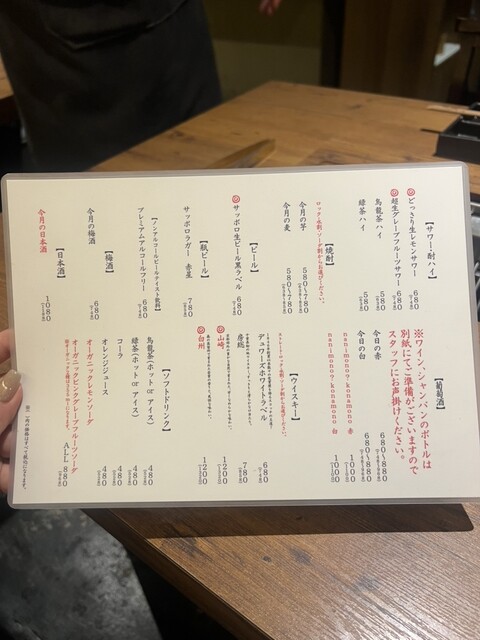 【サワー・酎ハイ】
どっさり生レモンサワー 680
超生グレープフルーツサワー 680
烏龍茶ハイ 580
緑茶ハイ 580
【焼酎】
ロック・水割・ソーダ割からお選び下さい。
今月の芋 580〜780
今月の麦 580〜780
【ビール】
サッポロ生ビール黒ラベル 680
【瓶ビール】
サッポロラガー 赤星 780
【ノンアルコールビールテイスト飲料】
プレミアムアルコールフリー 680
【梅酒】
今月の梅酒 680
【日本酒】
今月の日本酒 1080
【葡萄酒】
※ワイン・シャンパンのボトルは
別紙にてご準備がございますので
スタッフにお声掛けください。
今日の赤 680〜880
今日の白 680〜880
nanimono?konamono 赤 1080
nanimono?konamono 白 1080
【ウイスキー】
ストレート・ロック・水割・ソーダ割からお選び下さい。
デュワーズホワイトラベル 680
房総 780
山崎 1200
白州 1200
【ソフトドリンク】
烏龍茶（ホット or アイス） 480
緑茶（ホット or アイス） 480
コーラ 480
オレンジジュース 480
オーガニックレモンソーダ
オーガニックピンクグレープフルーツソーダ
ALL 880